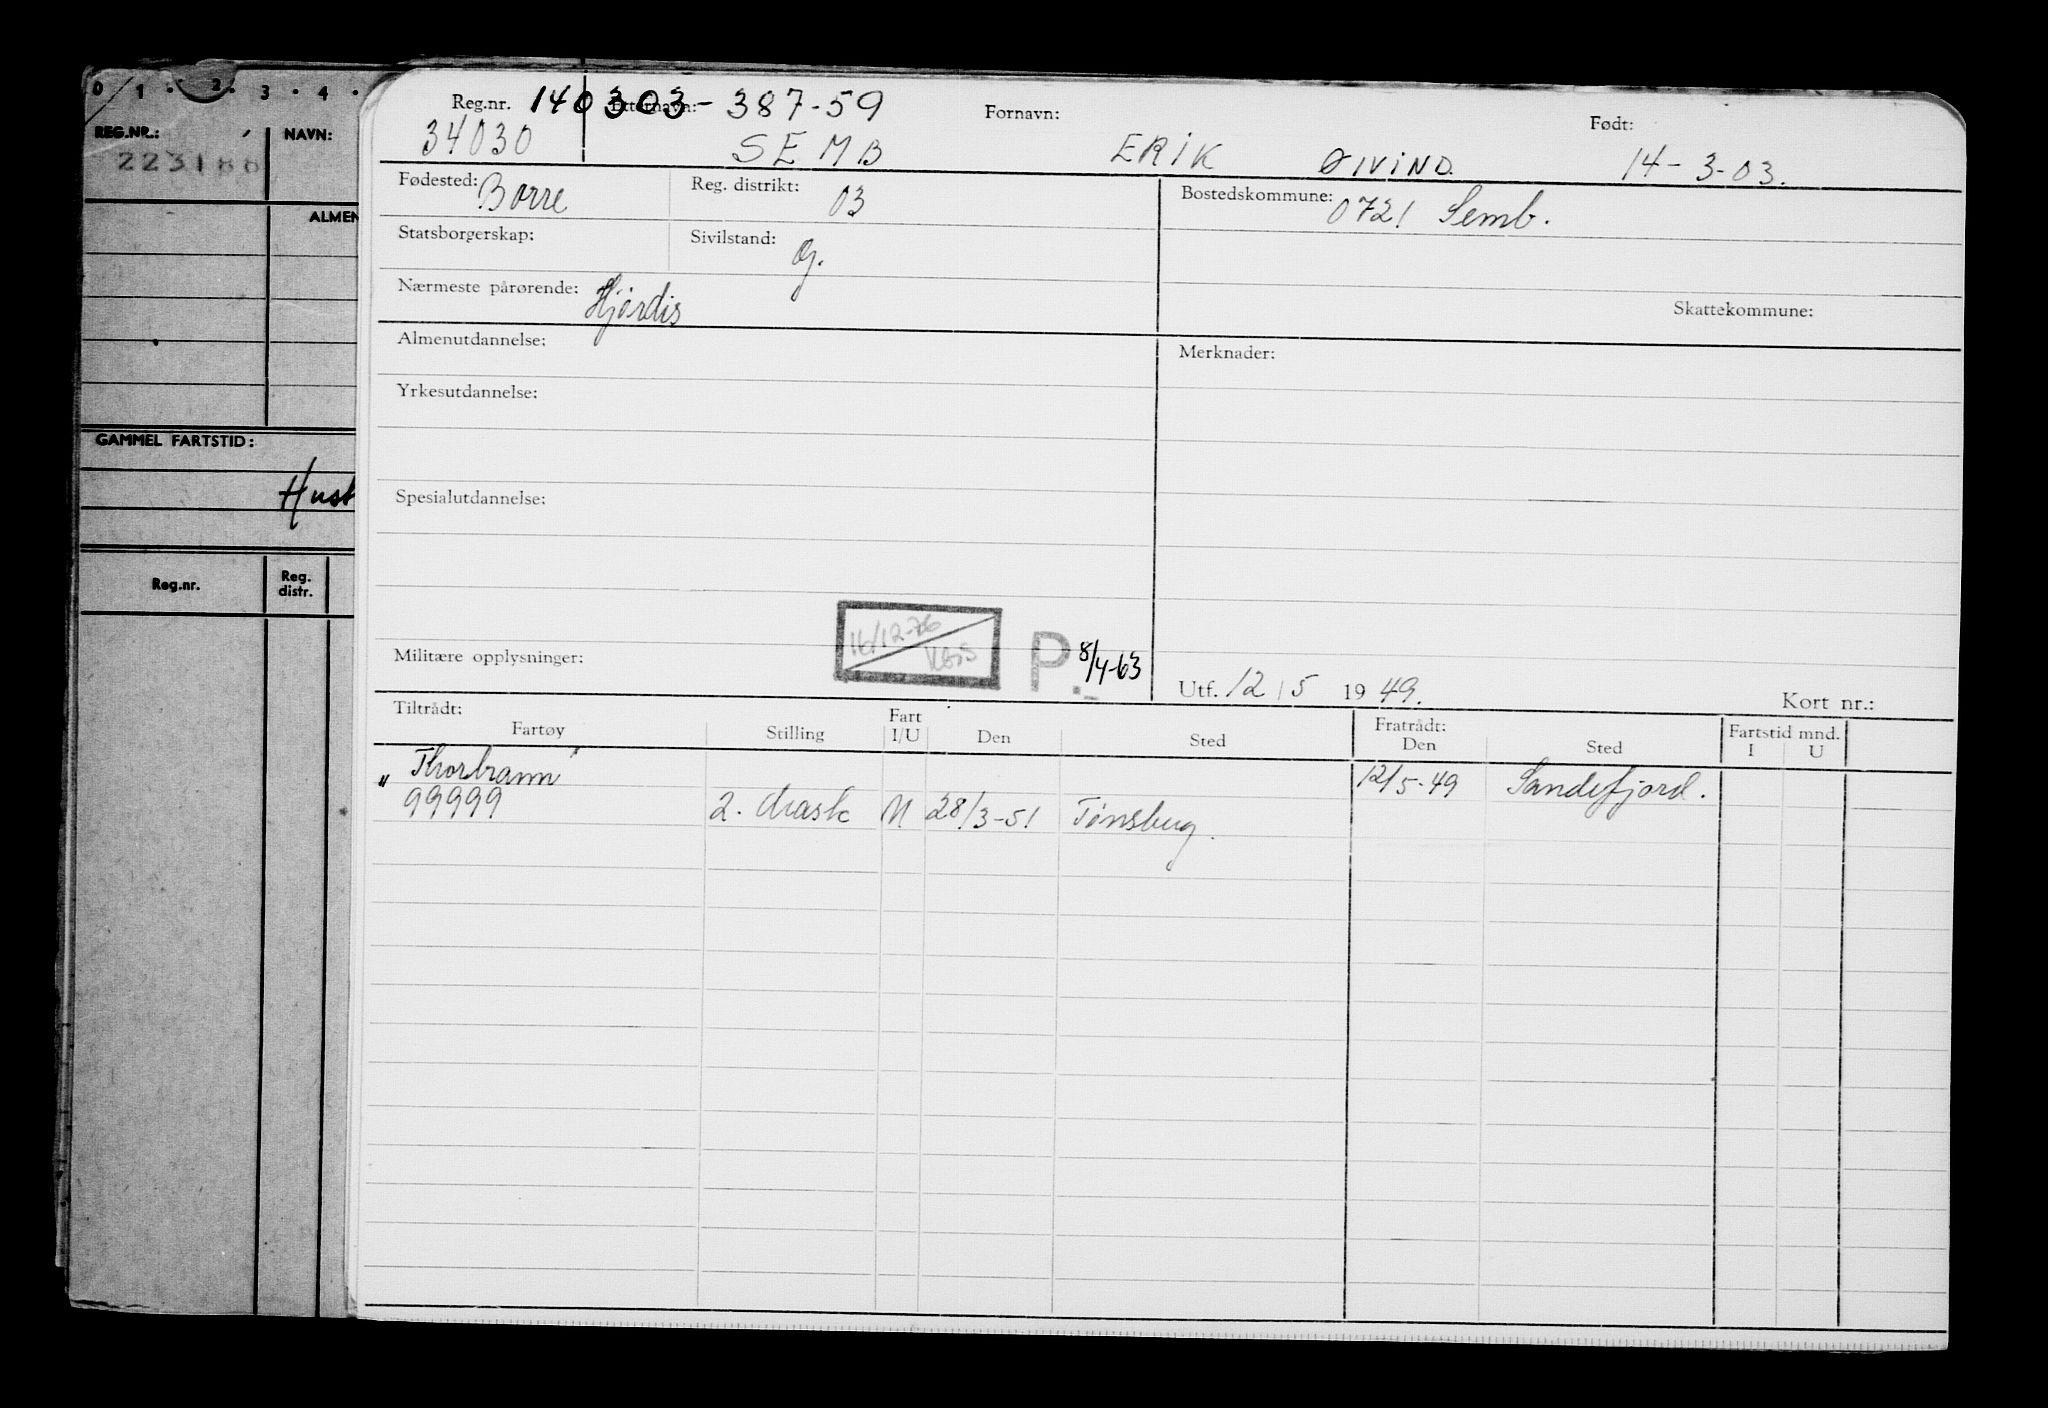 0 1 2 3 4
REG.NR.: NAVN:
223186
ALMEN
GAMMEL FARTSTID:
Hust
Reg.nr. Reg. distr.
Reg.nr. 140303-387-59 Etternavn: Fornavn: Født:
34030 SEMB ERIK ØIVIND. 14-3-03.
Fødested: Borre Reg. distrikt: 03 Bostedskommune: 0721 Semb.
Statsborgerskap: Sivilstand: G.
Nærmeste pårørende: Hjørdis Skattekommune:
Almenutdannelse: Merknader:
Yrkesutdannelse:
Spesialutdannelse:
16/12-76
Militære opplysninger: P. 8/4-63
Utf. 12/5 1949. Kort nr.:
Tiltrådt: Fratrådt: Fartstid mnd.
Fartøy Stilling Fart I/U Den Sted Den Sted I U
"Thorbrann" 12/5-49 Sandefjord.
99999 2. Mask U 28/3-51 Tønsberg.